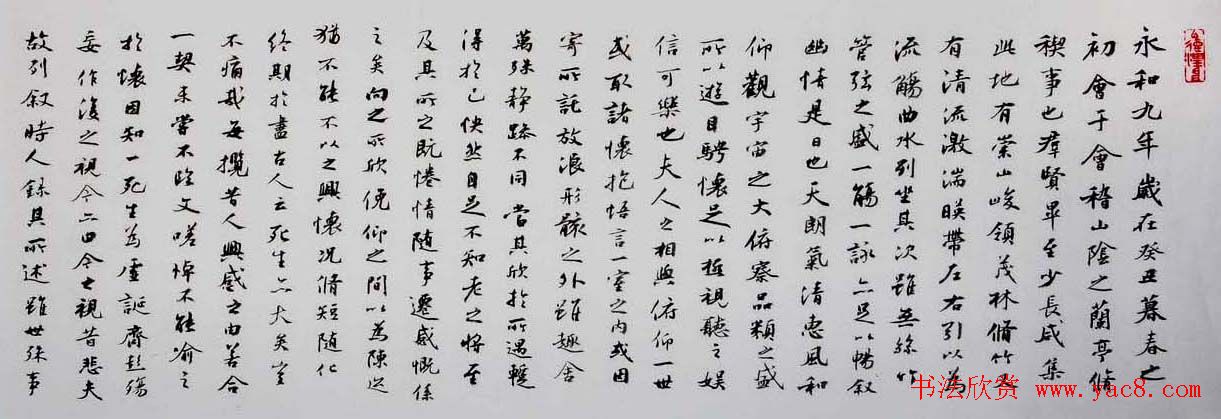 永和九年歲在癸丑暮春之
初會于會稽山陰之蘭亭脩
稧事也羣賢畢至少長咸集
此地有崇山峻領茂林脩竹又
有清流激湍暎帶左右引以為
流觴曲水列坐其次雖無絲竹
管弦之盛一觴一詠亦足以暢叙
幽情是日也天朗氣清惠風和
仰觀宇宙之大俯察品類之盛
所以遊目騁懷足以極視聽之娛
信可樂也夫人之相與俯仰一世
或取諸懷抱悟言一室之內或因
寄所託放浪形骸之外雖趣舍
萬殊靜躁不同當其欣於所遇蹔
得於己快然自足不知老之將至
及其所之既惓情隨事遷感慨係
之矣向之所欣俛仰之間以為陳迹
猶不能不以之興懷況脩短隨化
終期於盡古人云死生亦大矣豈
不痛哉每攬昔人興感之由若合
一契未嘗不臨文嗟悼不能喻之
於懷固知一死生為虛誕齊彭殤
妄作後之視今亦由今之視昔悲夫
故列叙時人錄其所述雖世殊事
书法欣赏 www.yac8.com